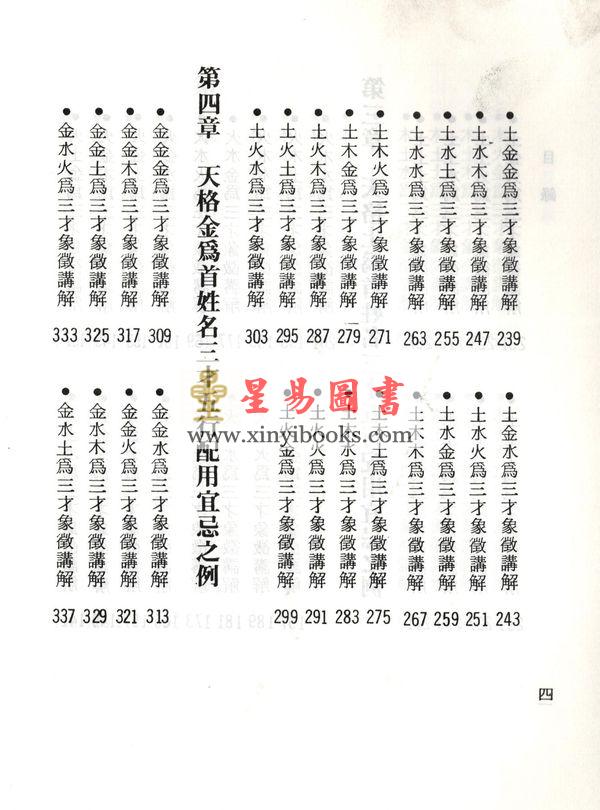 ● 土金金爲三才象徵講解 239
● 土金水爲三才象徵講解 243
● 土水木爲三才象徵講解 247
● 土水火爲三才象徵講解 251
● 土水土爲三才象徵講解 255
● 土水金爲三才象徵講解 259
● 土水水爲三才象徵講解 263
● 土木木爲三才象徵講解 267
● 土木火爲三才象徵講解 271
● 土木土爲三才象徵講解 275
● 土木金爲三才象徵講解 279
● 土木水爲三才象徵講解 283
● 土火木爲三才象徵講解 287
● 土火火爲三才象徵講解 291
● 土火土爲三才象徵講解 295
● 土火金爲三才象徵講解 299
● 土火水爲三才象徵講解 303
第四章 天格金爲首姓名三才五行配用宜忌之例
● 金金金爲三才象徵講解 309
● 金金水爲三才象徵講解 313
● 金金木爲三才象徵講解 317
● 金金火爲三才象徵講解 321
● 金金土爲三才象徵講解 325
● 金水木爲三才象徵講解 329
● 金水火爲三才象徵講解 333
● 金水土爲三才象徵講解 337
四
星易圖書
www.xinyibooks.com